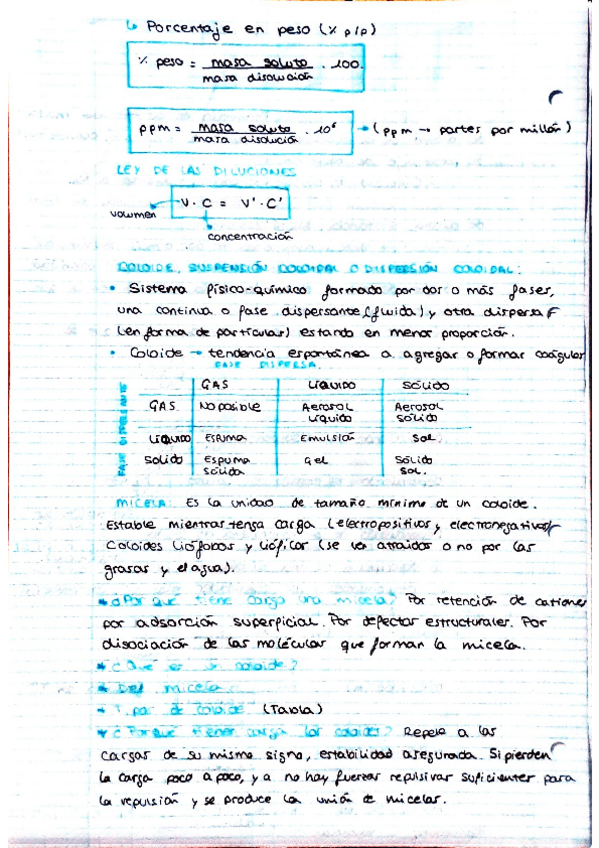 ↳ Porcentaje en peso (% p/p)
% peso = masa soluto / masa disolución . 100.
ppm = masa soluto / masa disolución . 10⁶ → (ppm → partes por millón)
LEY DE LAS DILUCIONES
V · C = V' · C'
volumen
concentración
COLOIDE, SUSPENSIÓN COLOIDAL O DISPERSIÓN COLOIDAL:
• Sistema físico-químico formado por dos o más fases,
una continua o fase dispersante (fluida) y otra dispersa
(en forma de partículas) estando en menos proporción.
• Coloide → tendencia espontánea a agregar o formar coágulos
FASE DISPERSA.
GAS LÍQUIDO SÓLIDO
FASE DISPERSANTE
GAS No posible Aerosol líquido Aerosol sólido
LÍQUIDO Espuma Emulsión Sol
SÓLIDO Espuma sólida Gel Sólido sol.
MICELA: Es la unidad de tamaño mínimo de un coloide.
Estable mientras tenga carga (electropositivos y electronegativos)
Coloides liófobos y liófilos (se ven atraídos o no por las
grasas y el agua).
* ¿Por qué tiene carga una micela? Por retención de cationes
por adsorción superficial. Por defectos estructurales. Por
disociación de las moléculas que forman la micela.
* ¿Qué es un coloide?
* Def. micela
* Tipos de coloide (Tabla)
* ¿Porque tienen carga los coloides? Repele a las
cargas de su mismo signo, estabilidad asegurada. Si pierden
la carga poco a poco, ya no hay fuerzas repulsivas suficientes para
la repulsión y se produce la unión de micelas.